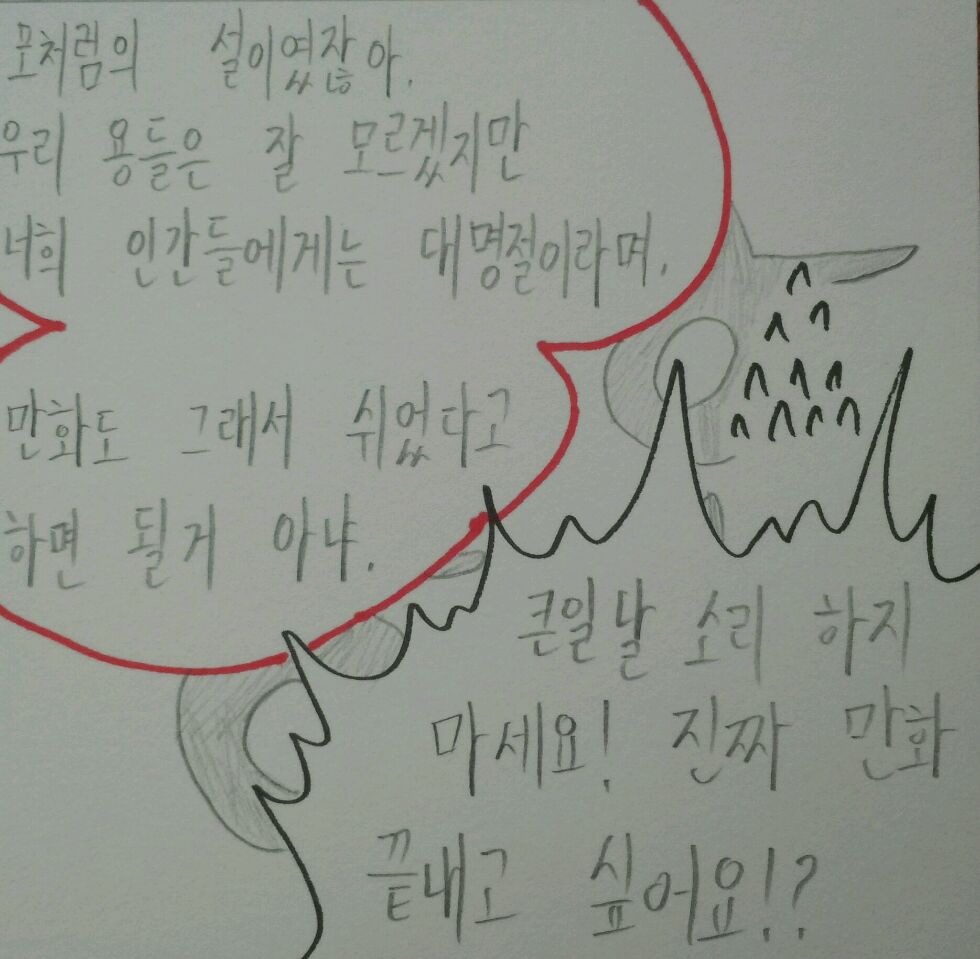 모처럼의 설이였잖아.
우리 용들은 잘 모르겠지만
너희 인간들에게는 대명절이라며.
만화도 그래서 쉬었다고
하면 될거 아냐.
큰일날 소리 하지
마세요! 진짜 만화
끝내고 싶어요!?